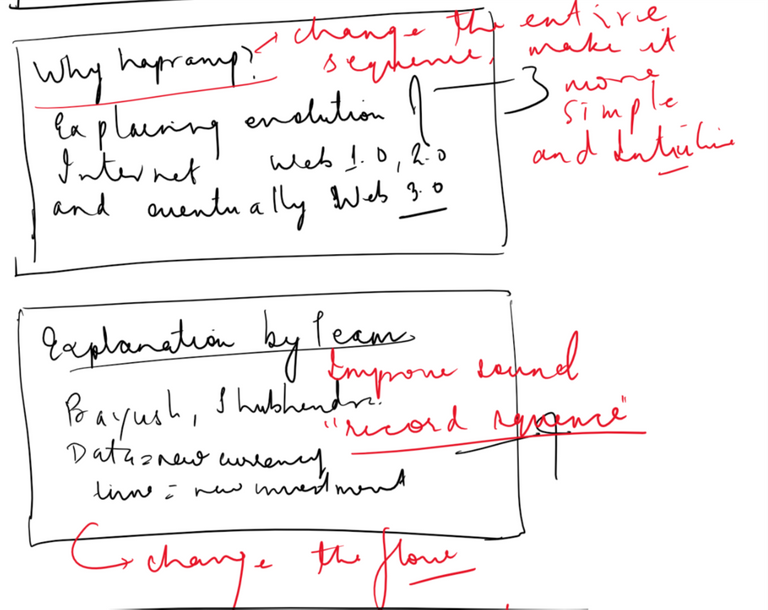 Why hapramp?
change the entire
sequence, make it
more
simple
and intuitive
Explaining evolution of
Internet Web 1.0, 2.0
and eventually Web 3.0
3
Explanation by Team
Improve sound
Shubhendra
"record sequence"
Data = new currency
time = new investment
change the flow